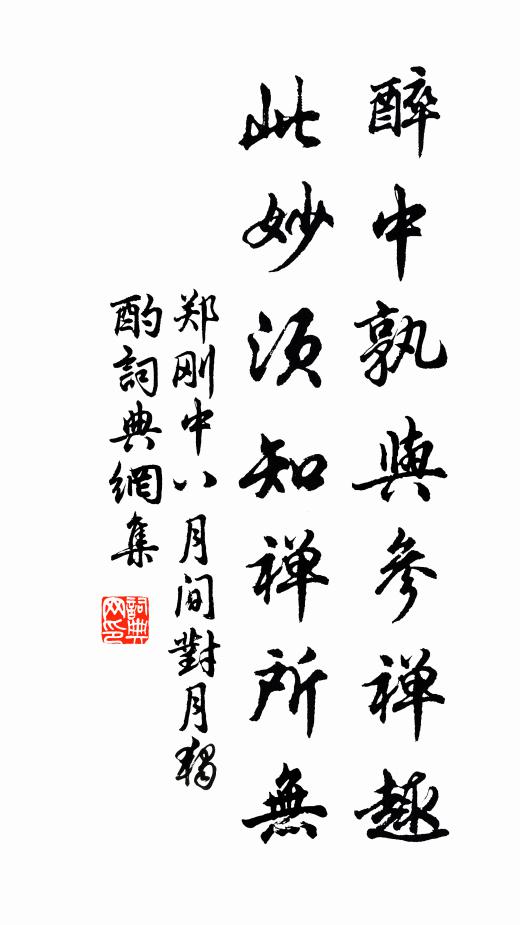 醉中孰與參禅趣
此妙須知禅所無
郑刚中八月间對月獨
酌詞典網集
詞典网印